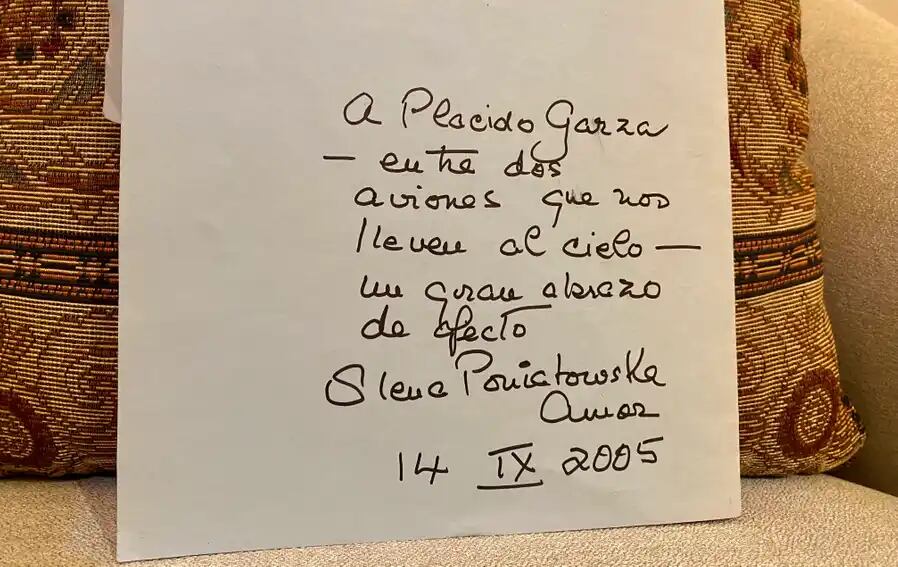 A Placido Garza
— entre dos
aviones que nos
lleven al cielo —
un gran abrazo
de afecto
Elena Poniatowska
Amor
14 IX 2005